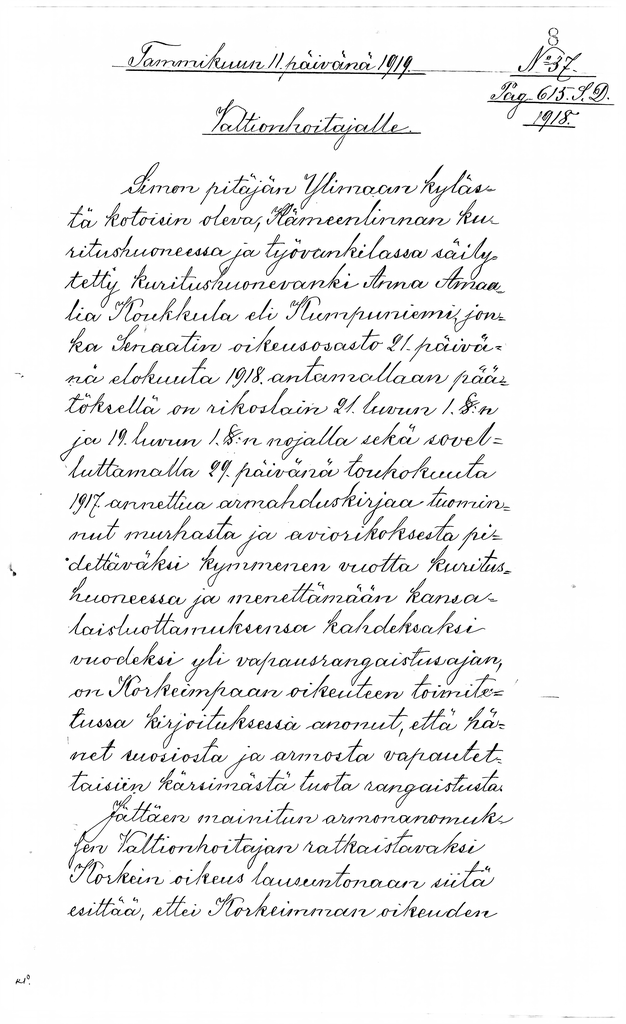 8
Tammikuun 11. päivänä 1919.
No 37.
Pag. 615. S.D.
1918.
Valtionhoitajalle.
Simon pitäjän Ylimaan kyläs=
tä kotoisin oleva, Hämeenlinnan ku=
ritushuoneessa ja työvankilassa säily=
tetty kuritushuonevanki Anna Amaa=
lia Koukkula eli Kumpuniemi, jon=
ka Senaatin oikeusosasto 21. päivä=
nä elokuuta 1918. antamallaan pää=
töksellä on rikoslain 21. luvun 1. §:n
ja 19. luvun 1. §:n nojalla sekä sovel=
luttamalla 29. päivänä toukokuuta
1917. annettua armahduskirjaa tuomin=
nut murhasta ja aviorikoksesta pi=
dettäväksi kymmenen vuotta kuritus=
huoneessa ja menettämään kansa=
laisluottamuksensa kahdeksaksi
vuodeksi yli vapausrangaistusajan,
on Korkeimpaan oikeuteen toimite=
tussa kirjoituksessa anonut, että hä=
net suosiosta ja armosta vapautet=
taisiin kärsimästä tuota rangaistusta.
Jättäen mainitun armonanomuk=
sen Valtionhoitajan ratkaistavaksi
Korkein oikeus lausuntonaan siitä
esittää, ettei Korkeimman oikeuden